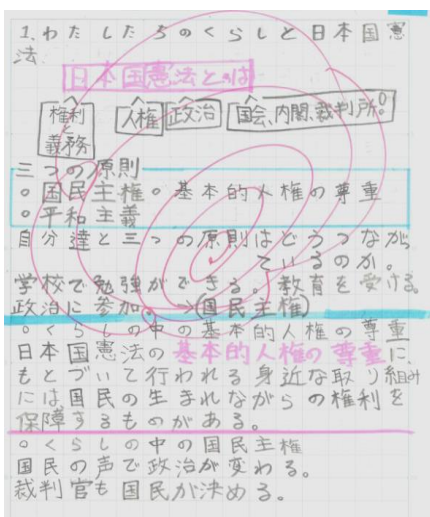 1.わたしたちのくらしと日本国憲
法
日本国憲法とは
権利と義務 人権 政治 国会、内閣、裁判所
三つの原則
○国民主権○基本的人権の尊重
○平和主義
自分達と三つの原則はどうつなが
ているのか。
学校で勉強ができる。教育を受ける。
政治に参加。→国民主権
○くらしの中の基本的人権の尊重
日本国憲法の基本的人権の尊重に、
もとづいて行われる身近な取り組み
には国民の生まれながらの権利を
保障するものがある。
○くらしの中の国民主権
国民の声で政治が変わる。
裁判官も国民が決める。